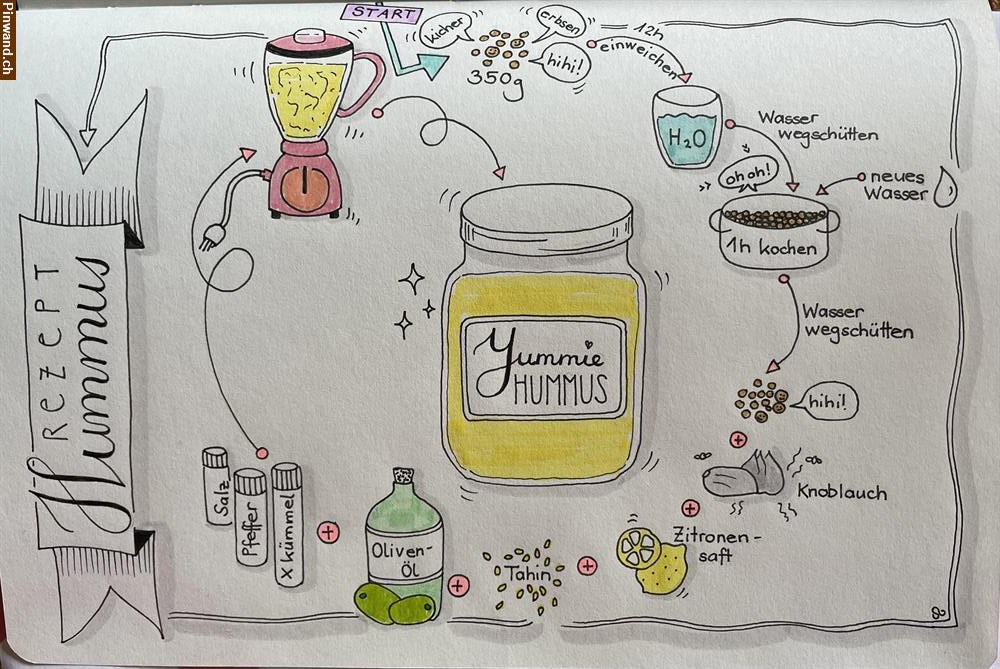 Pinwand.ch
REZEPT
Hummus
START
kicher
erbsen
hihi!
350g
12h
einweichen
H₂O
Wasser
wegschütten
oh oh!
neues
Wasser
1h kochen
Wasser
wegschütten
hihi!
Knoblauch
Zitronen-
saft
Tahin
Oliven-
Öl
X Kümmel
Pfeffer
Salz
Yummie
HUMMUS